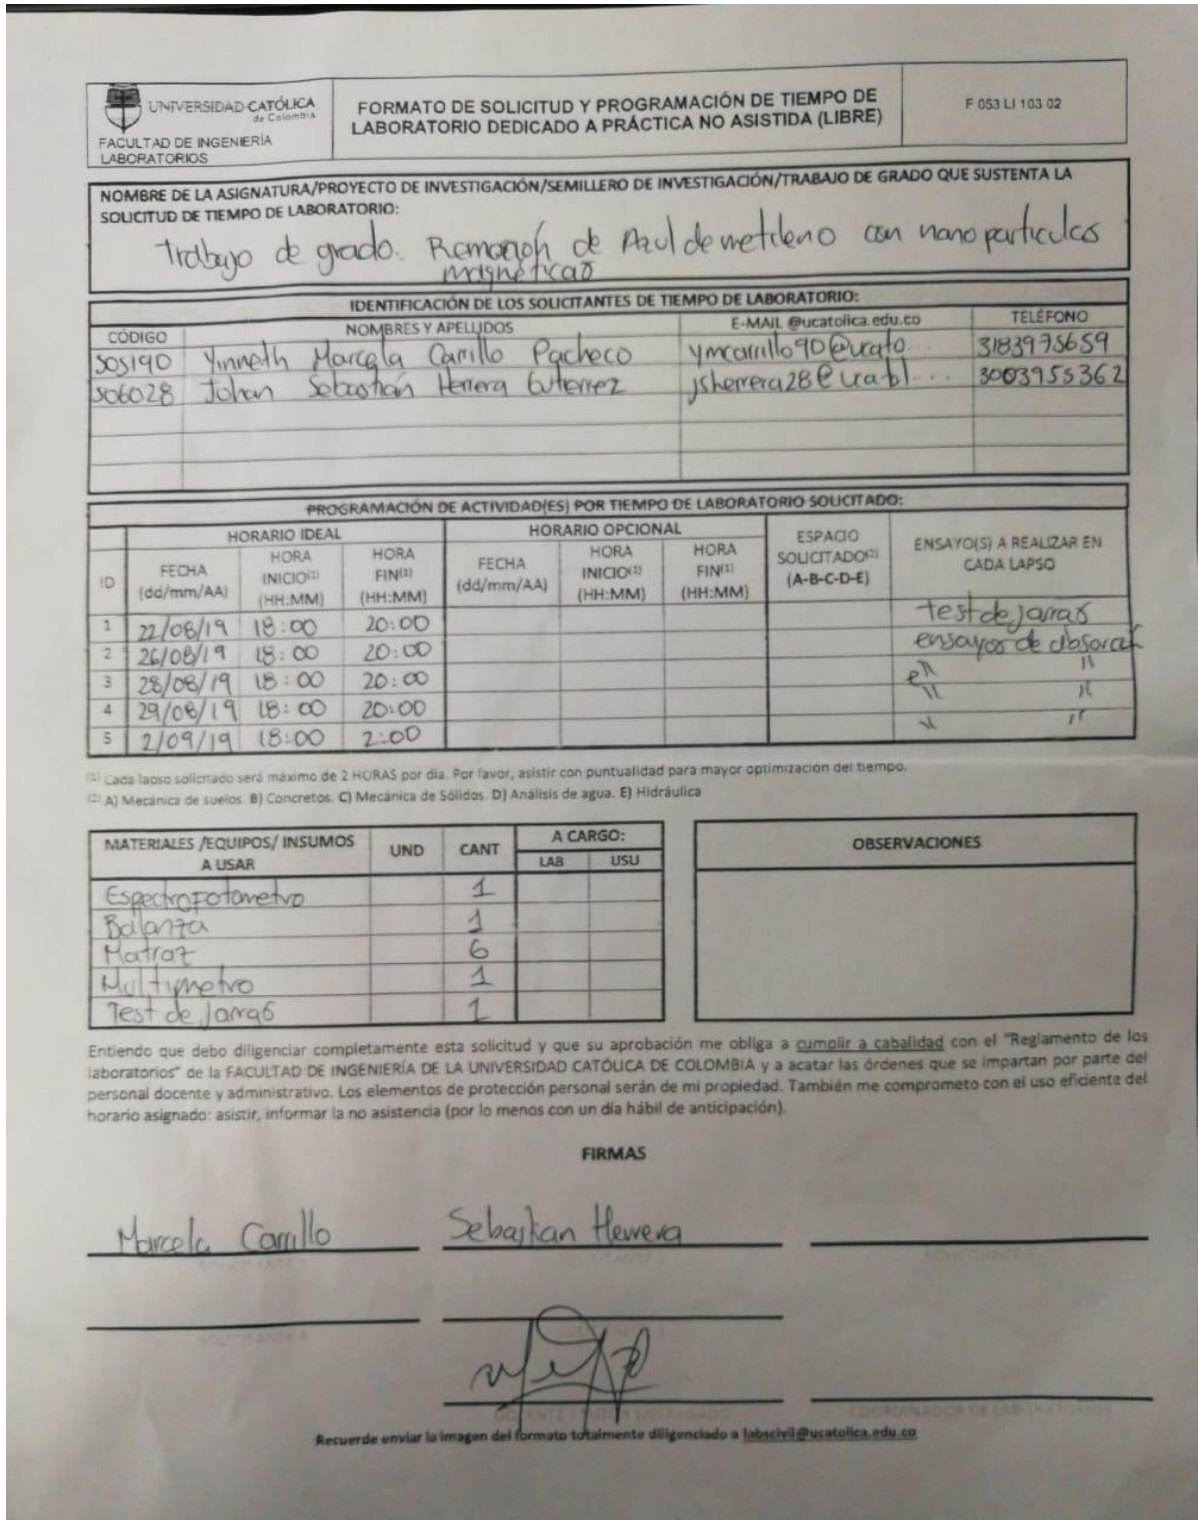 UNIVERSIDAD CATÓLICA
de Colombia
FACULTAD DE INGENIERÍA
LABORATORIOS
FORMATO DE SOLICITUD Y PROGRAMACIÓN DE TIEMPO DE
LABORATORIO DEDICADO A PRÁCTICA NO ASISTIDA (LIBRE)
F 053 LI 103 02
NOMBRE DE LA ASIGNATURA/PROYECTO DE INVESTIGACIÓN/SEMILLERO DE INVESTIGACIÓN/TRABAJO DE GRADO QUE SUSTENTA LA
SOLICITUD DE TIEMPO DE LABORATORIO:
Trabajo de grado. Remoción de Azul de metileno con nano particulas
magnéticas
IDENTIFICACIÓN DE LOS SOLICITANTES DE TIEMPO DE LABORATORIO:
CÓDIGO NOMBRES Y APELLIDOS E-MAIL @ucatolica.edu.co TELÉFONO
505190 Yinneth Marcela Carrillo Pacheco ymcarrillo90@ucato... 3183975659
506028 Johan Sebastián Herrera Gutierrez jsherrera28@ 3003955362
PROGRAMACIÓN DE ACTIVIDAD(ES) POR TIEMPO DE LABORATORIO SOLICITADO:
ID HORARIO IDEAL HORARIO OPCIONAL ESPACIO SOLICITADO(2) (A-B-C-D-E) ENSAYO(S) A REALIZAR EN CADA LAPSO
FECHA (dd/mm/AA) HORA INICIO(1) (HH:MM) HORA FIN(1) (HH:MM) FECHA (dd/mm/AA) HORA INICIO(1) (HH:MM) HORA FIN(1) (HH:MM)
1 22/08/19 18:00 20:00 test de jarras
2 26/08/19 18:00 20:00 ensayos de
3 28/08/19 18:00 20:00 " "
4 29/08/19 18:00 20:00 " "
5 2/09/19 18:00 2:00 " "
(1) Cada lapso solicitado será máximo de 2 HORAS por día. Por favor, asistir con puntualidad para mayor optimización del tiempo.
(2) A) Mecánica de suelos. B) Concretos. C) Mecánica de Sólidos. D) Análisis de agua. E) Hidráulica
MATERIALES /EQUIPOS/ INSUMOS A USAR UND CANT A CARGO: LAB USU
Espectrofotometro 1
Balanza 1
Matraz 6
Multimetro 1
Test de Jarras 1
OBSERVACIONES
Entiendo que debo diligenciar completamente esta solicitud y que su aprobación me obliga a cumplir a cabalidad con el "Reglamento de los
laboratorios" de la FACULTAD DE INGENIERÍA DE LA UNIVERSIDAD CATÓLICA DE COLOMBIA y a acatar las órdenes que se impartan por parte del
personal docente y administrativo. Los elementos de protección personal serán de mi propiedad. También me comprometo con el uso eficiente del
horario asignado: asistir, informar la no asistencia (por lo menos con un día hábil de anticipación).
FIRMAS
Marcela Carrillo Sebastian Herrera
SOLICITANTE 3
SOLICITANTE 4
COORDINADOR DE LABORATORIOS
Recuerde enviar la imagen del formato totalmente diligenciado a labscivil@ucatolica.edu.co